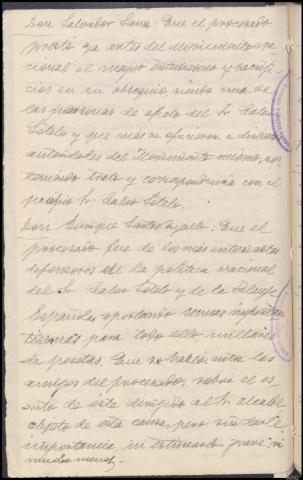 Don Salvador Sanz: Que el procesado
prestó ya antes del Movimiento na
cional el mayor entusiasmo y sacrifi
cios en su obsequio, siendo una de
las personas de apoyo del Sr. Calvo
Sotelo y que más se ofrecieron a diversas
autoridades del Movimiento mismo, sos
teniendo trato y correspondencia con el
propio Sr. Calvo Sotelo.
Don Enrique Santos: Que el
procesado fue de los más entusiastas
defensores de la política nacional
del Sr. Calvo Sotelo y de la Falange
Española, aportando sumas importan
tísimas para todo ello millares
de pesetas. Que se habló entre los
amigos del procesado, sobre el es
crito de éste dirigido al Sr. alcalde
objeto de esta causa, pero sin darle
importancia ni estimarlo grave ni
mucho menos.